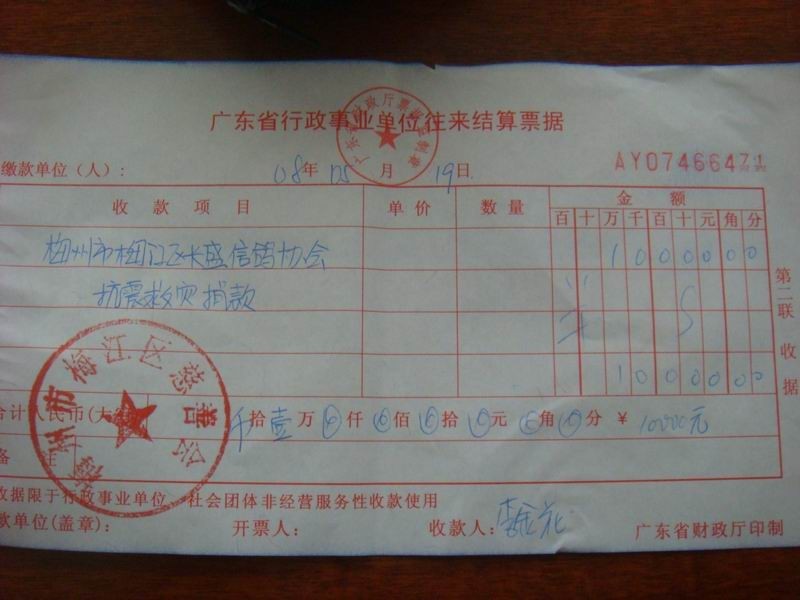 广东省行政事业单位往来结算票据
广东省财政厅票据监制章
缴款单位（人）： 08年05月19日 AY07466471
收款项目 单价 数量 金额
百十万千百十元角分
梅州市梅江区长盛信鸽协会 1000000
抗震救灾捐款
1000000
第二联 收据
梅州市梅江区慈善公
合计人民币(大写) 拾壹万⓪仟⓪佰⓪拾⓪元⓪角⓪分 ¥ 10000元
备注
收据限于行政事业单位、社会团体非经营服务性收款使用
款单位(盖章)： 开票人： 收款人： 广东省财政厅印制